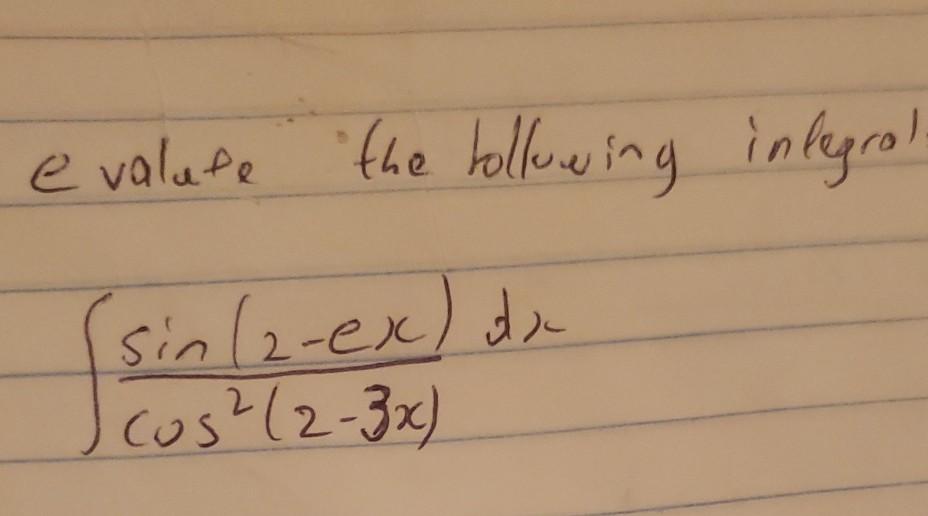 evalute the following integral
∫ sin(2-ex) dx
cos²(2-3x)